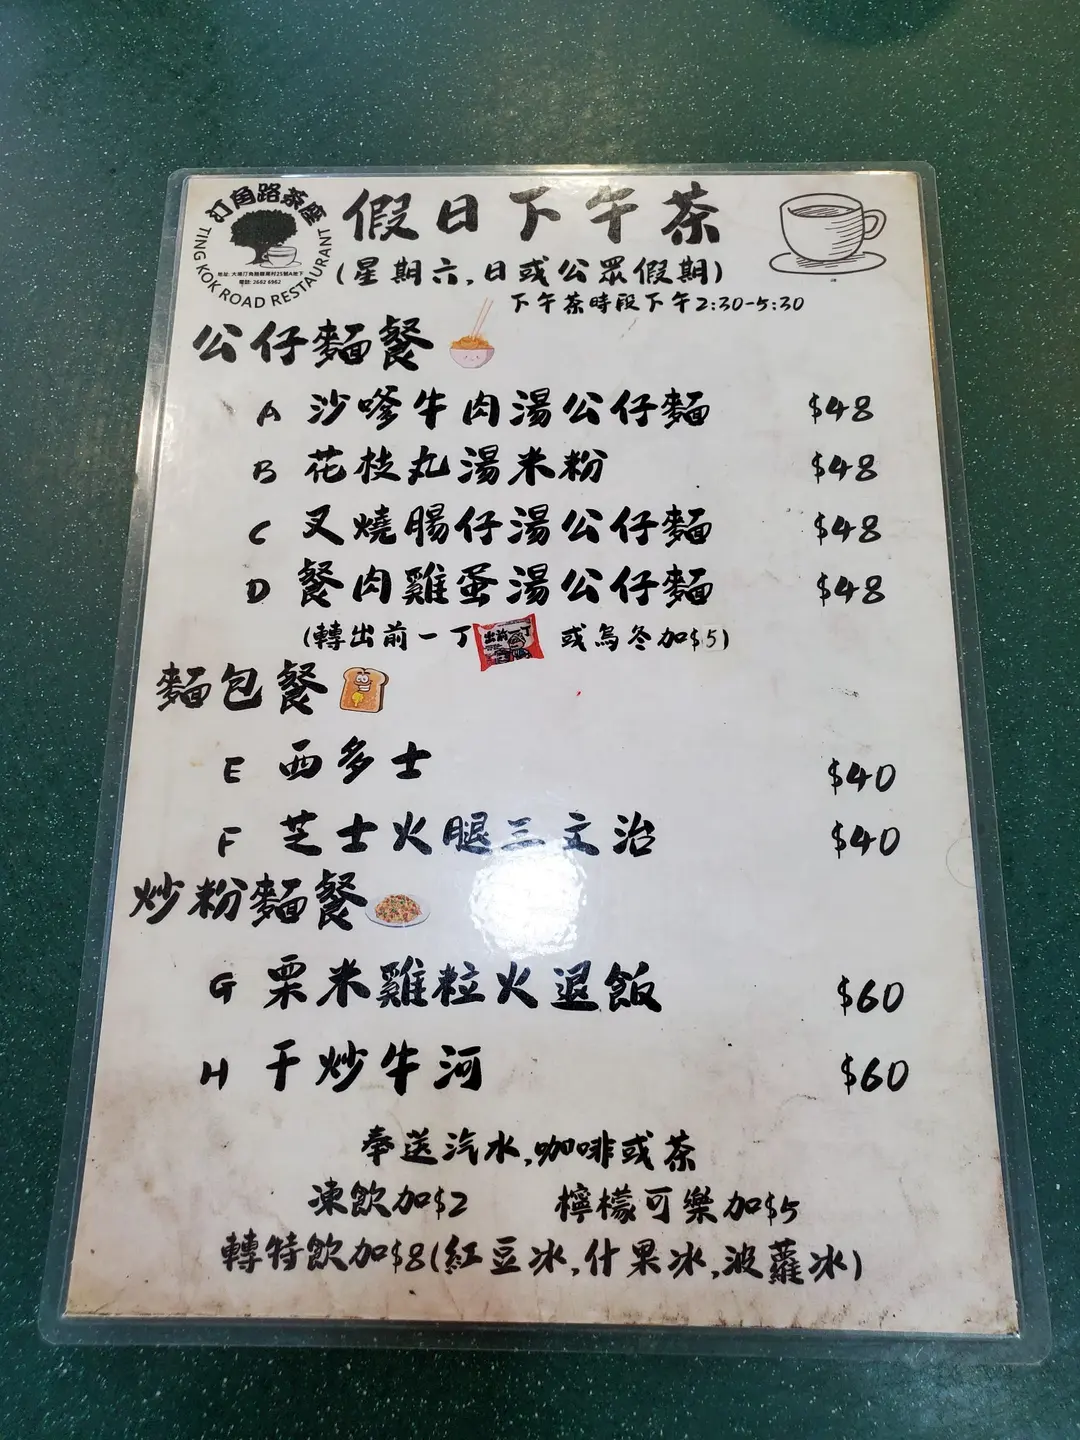 汀角路茶座
TING KOK ROAD RESTAURANT
電話: 2662 6962
假日下午茶
(星期六,日或公眾假期)
下午茶時段下午2:30-5:30
公仔麵餐
A 沙嗲牛肉湯公仔麵 $48
B 花枝丸湯米粉 $48
C 叉燒腸仔湯公仔麵 $48
D 餐肉雞蛋湯公仔麵 $48
(轉出前一丁 出前一丁 或烏冬加$5)
麵包餐
E 西多士 $40
F 芝士火腿三文治 $40
炒粉麵餐
G 栗米雞粒火退飯 $60
H 干炒牛河 $60
奉送汽水,咖啡或茶
凍飲加$2 檸檬可樂加$5
轉特飲加$8(紅豆冰,什果冰,波蘿冰)